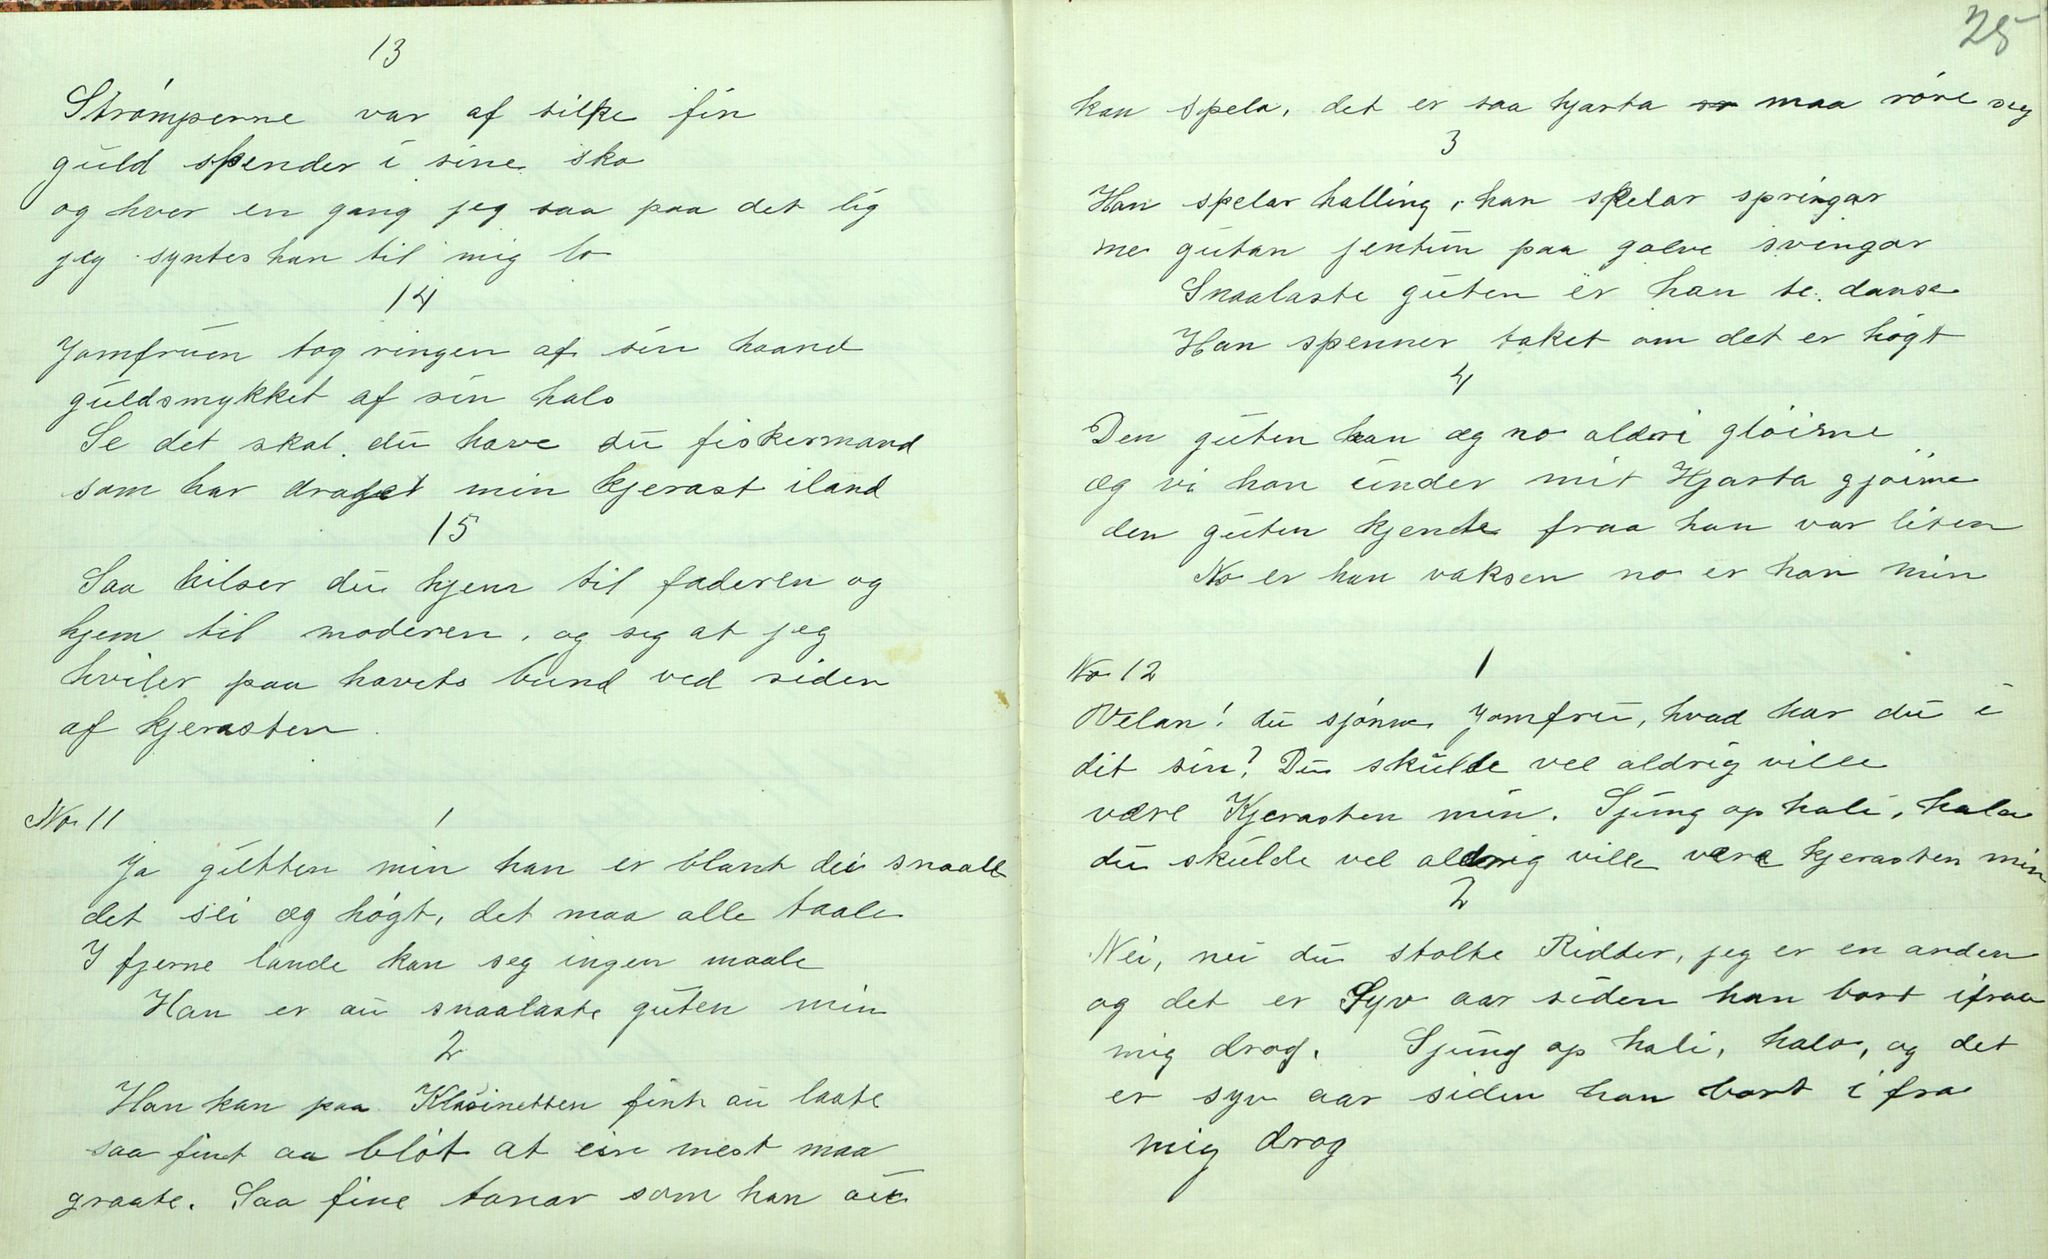 13
Strømperne var af silke fin
guld spender i sine sko
og hver en gang jeg saa paa det lig
jeg syntes han til mig lo
14
Jomfruen tog ringen af sin haand
guldsmykket af sin hals
Se det skal du have du fiskermand
som har draget min kjerast iland
15
Saa hilser du hjem til faderen og
hjem til moderen, og sig at jeg
hviler paa havets bund ved siden
af kjerasten.
No 11 1
Ja gutten min han er blant dei snaale
det sei æg høgt, det maa alle taale
I fjerne lande kan seg ingen maale
Han er au snaalaste guten min
2
Han kan paa Klasinetten fint au laate
saa fint aa bløt at ein mest maa
graate. Saa fine tonar som han au
25
kan spela, det er saa hjarta maa røre seg
3
Han spelar halling, han spelar springar
me gutan jentun paa golve svingar
Snaalaste guten er han te danse
Han spenner taket om det er høgt
4
Den guten kan æg no aldri gløime
æg vi han under mit Hjarta gjøime
den guten kjende fraa han var liten
No er han vaksen no er han min
No 12 1
Velan! du sjønne Jomfru, hvad har du i
dit sin? Du skulde vel aldrig ville
være Kjerasten min. Sjung op hali, halo
du skulde vel aldrig ville være kjerasten min
2
Nei, nei du stolte Ridder, jeg er en anden
og det er Syv aar siden han bort ifraa
mig drog. Sjung op hali, halo, og det
er syv aar siden han bort i fra
mig drog